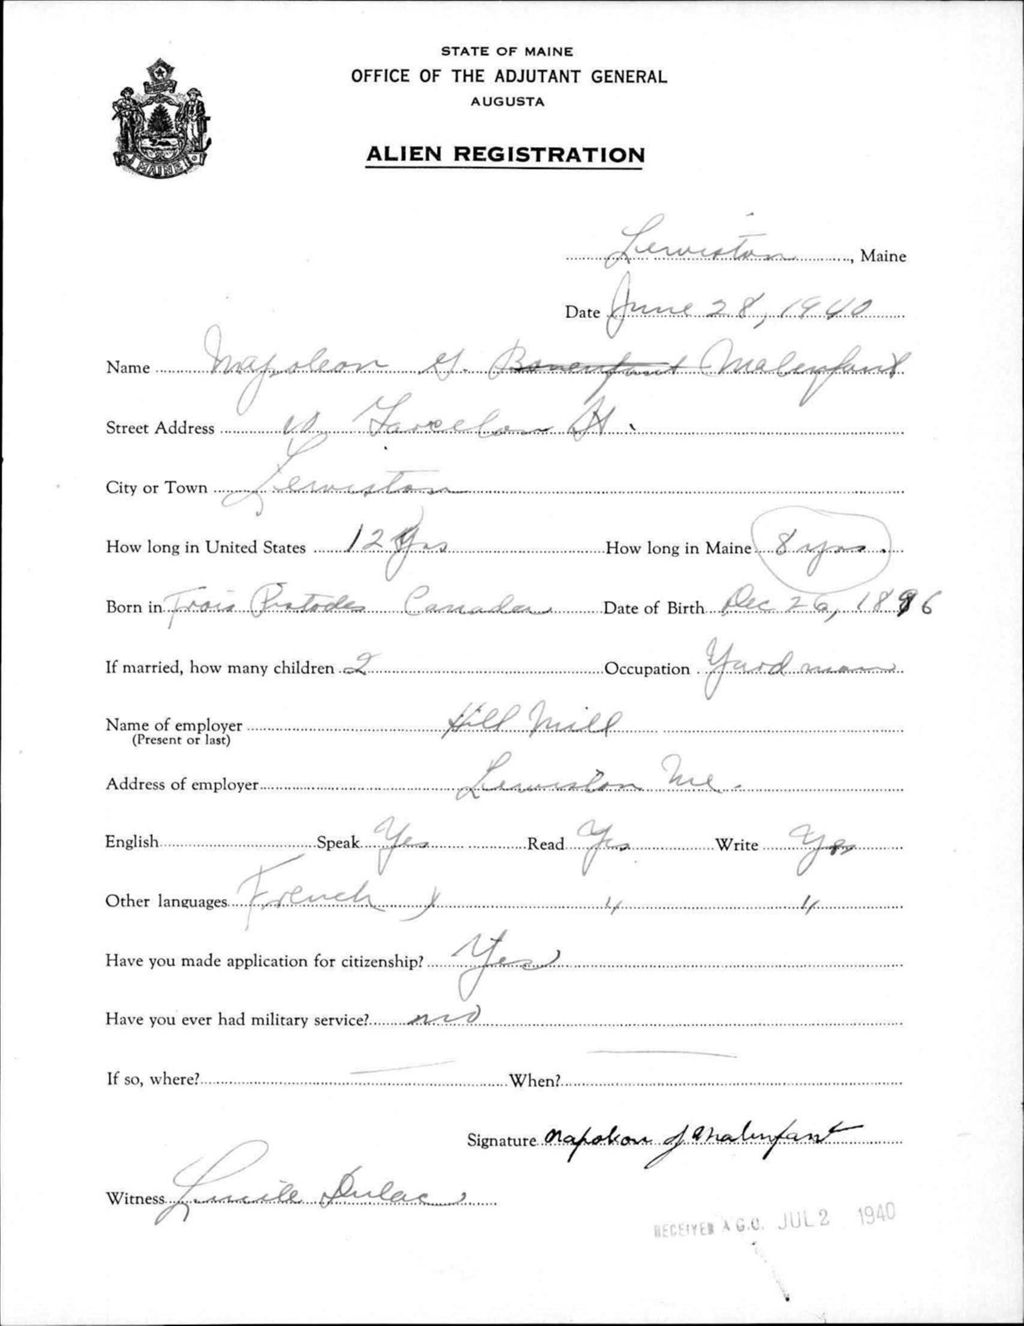 STATE OF MAINE
OFFICE OF THE ADJUTANT GENERAL
AUGUSTA
ALIEN REGISTRATION
MAINE
Lewiston, Maine
Date June 28, 1940
Name Napoleon G. Bonenfant Malenfant
Street Address 10 Farcelon St.
City or Town Lewiston
How long in United States 12 yrs How long in Maine 8 yrs.
Born in Trois Pistoles Canada Date of Birth Dec 26, 1896
If married, how many children 2 Occupation Yard man
Name of employer Hill Mill
(Present or last)
Address of employer Lewiston Me.
English Speak Yes Read Yes Write Yes
Other languages French " "
Have you made application for citizenship? Yes
Have you ever had military service? no
If so, where? — When? —
Signature Napoleon J Malenfant
Witness Lucile Dulac
RECEIVED A.G.O. JUL 2 1940